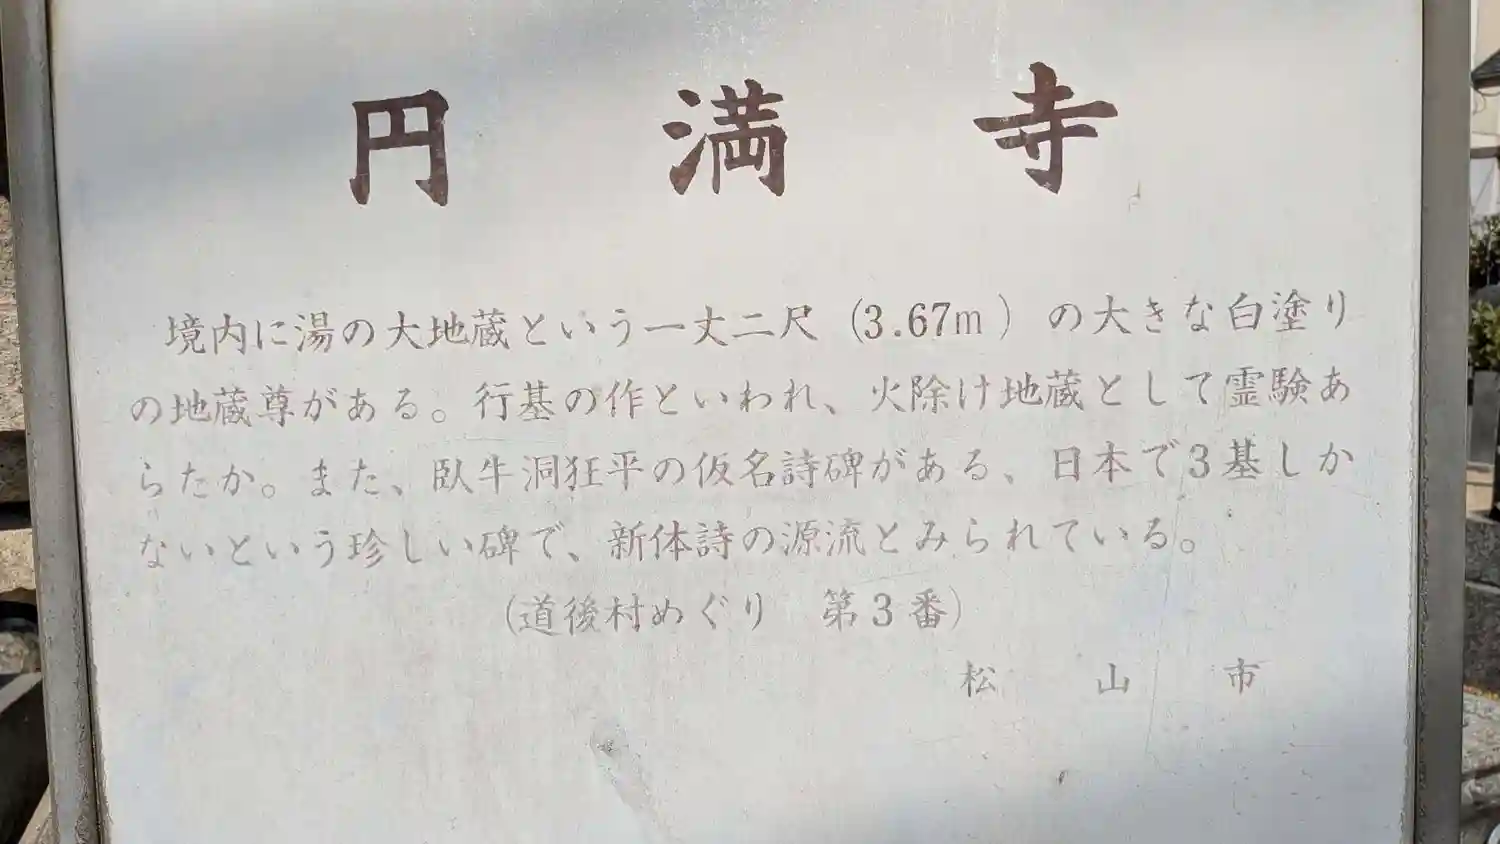 円満寺
境内に湯の大地蔵という一丈二尺(3.67m)の大きな白塗り
の地蔵尊がある。行基の作といわれ、火除け地蔵として霊験あ
らたか。また、臥牛洞狂平の仮名詩碑がある、日本で3基しか
ないという珍しい碑で、新体詩の源流とみられている。
(道後村めぐり 第3番)
松山市